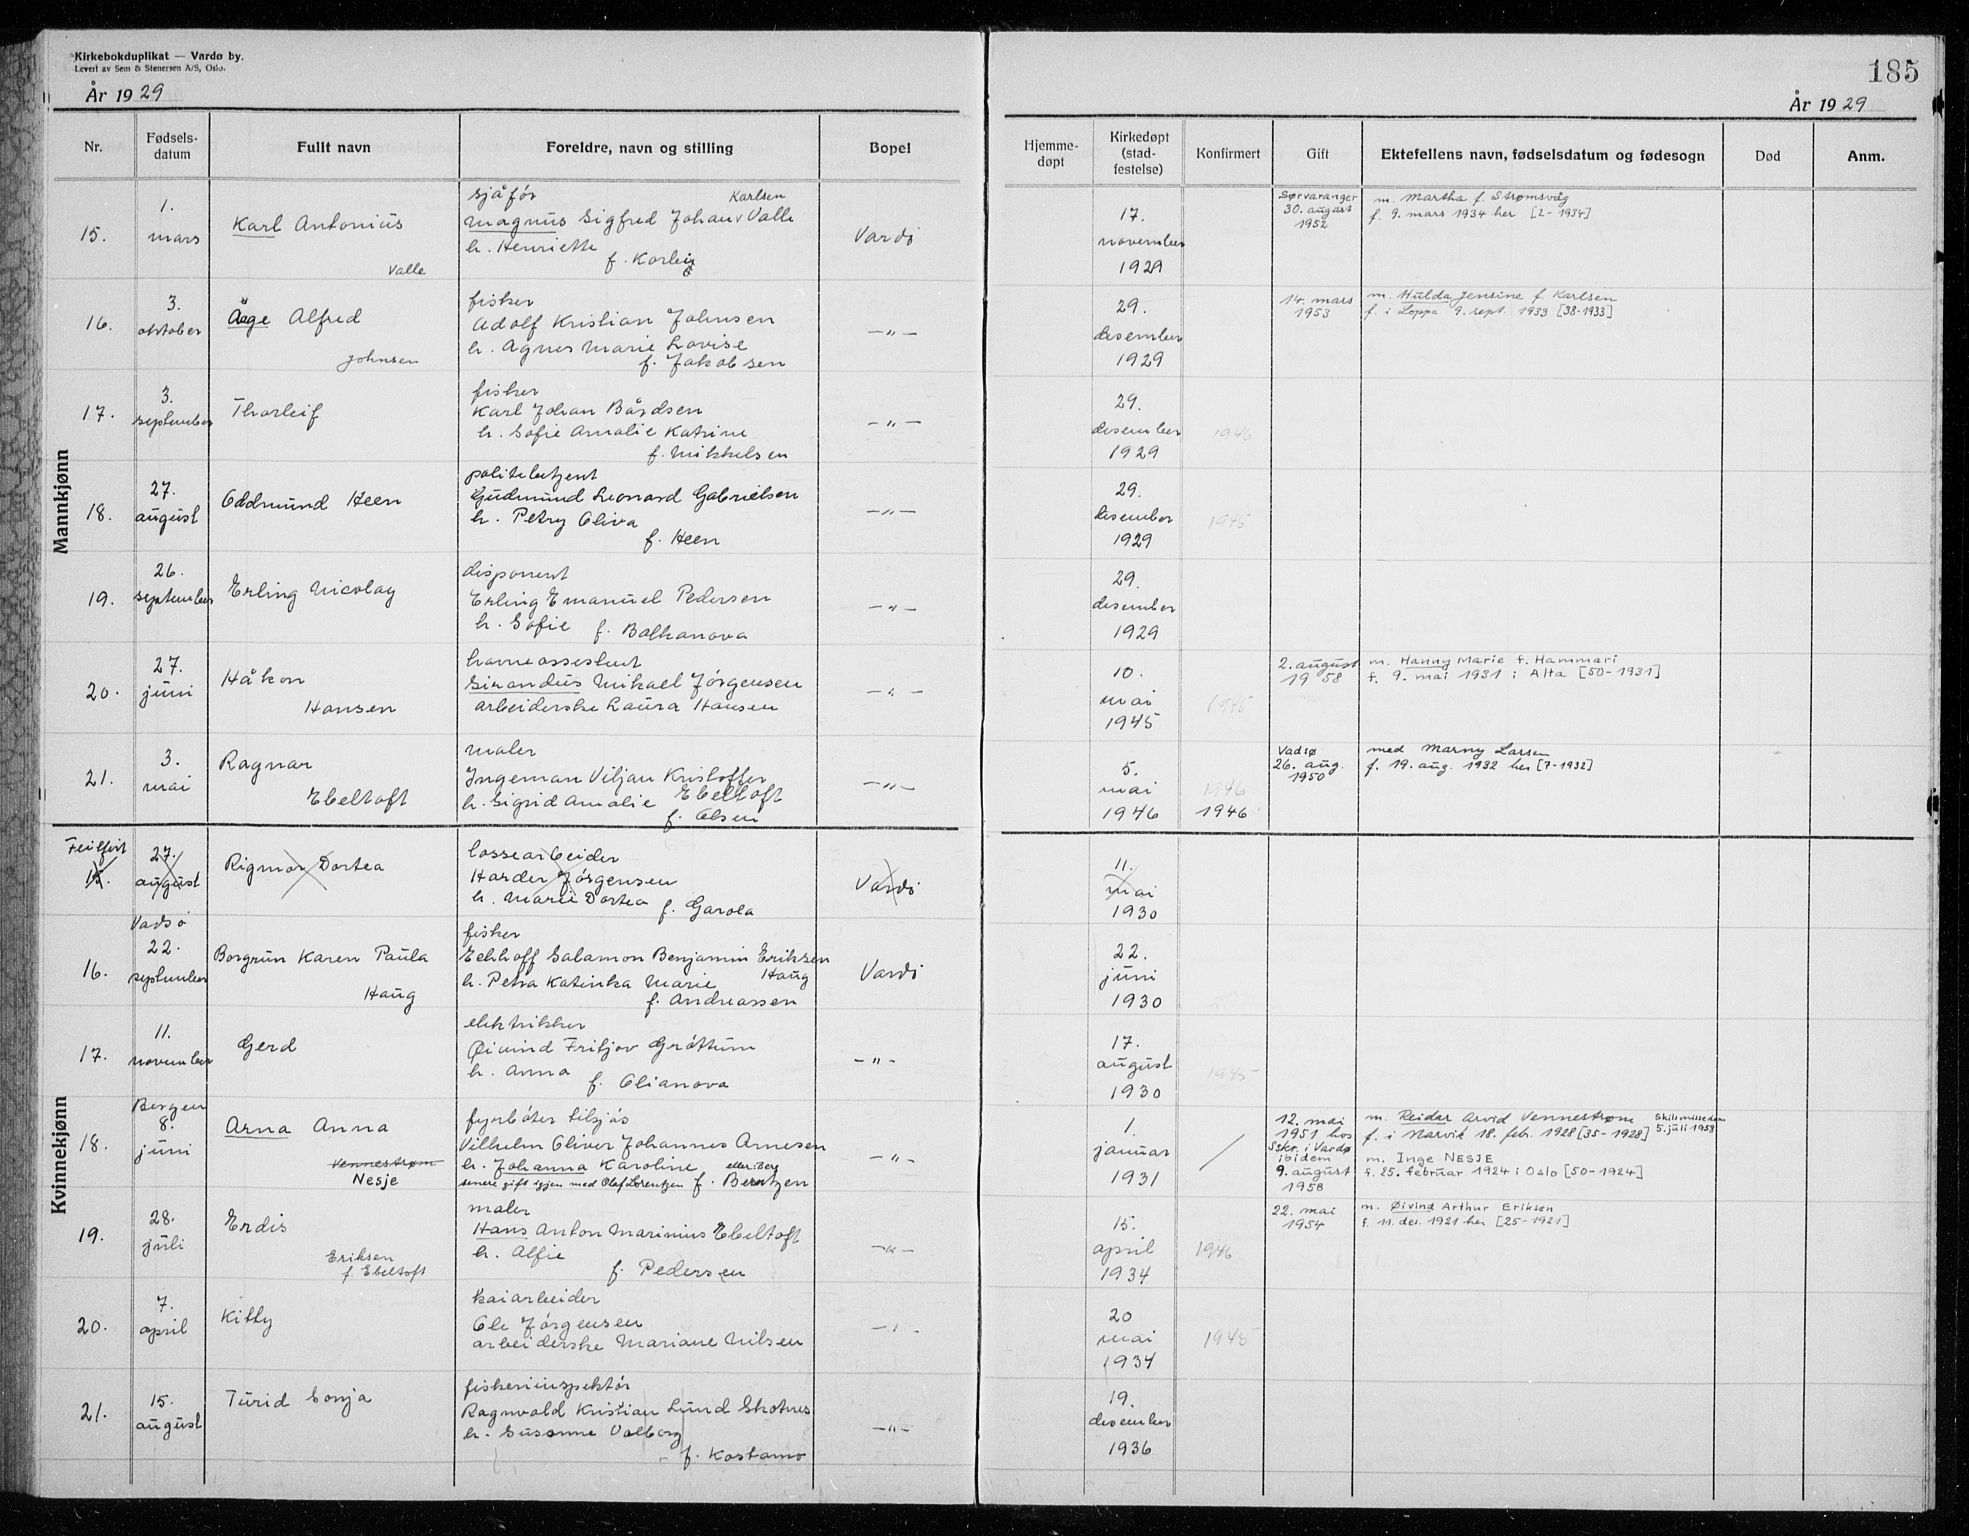 Kirkebokduplikat — Vardø by.
Levert av Sem & Stenersen A/S, Oslo.
185
År 1929
År 1929
Nr.
Fødsels-
datum
Fullt navn
Foreldre, navn og stilling
Bopel
Hjemme-
døpt
Kirkedøpt
(stad-
festelse)
Konfirmert
Gift
Ektefellens navn, fødselsdatum og fødesogn
Død
Anm.
Mannkjønn
15.
1.
mars
Karl Antonius
Valle
sjåfór
Karlsen
Magnus Sigfred Johan Valle
h. Henriette
f. Korbi
Vardö
17.
november
1929
Sørvaranger
30. august
1952
m. Martha f. Strømsvåg
f. 9. mars 1934 her [2-1934]
16.
3.
oktober
Åge Alfred
Johnsen
fisker
Adolf Kristian Johnsen
h. Agnes Marie Lovise
f. Jakobsen
—"—
29.
desember
1929
14. mars
1953
m. Hulda Jensine f. Karlsen
f. i Loppa 9. sept. 1933 [38-1933]
17.
3.
september
Thorleif
fisker
Karl Johan Bårdsen
h. Sofie Amalie Katrine
f. Mikkelsen
—"—
29.
desember
1929
1946
18.
27.
august
Oddmund Heen
politibetjent
Gudmund Leonard Gabrielsen
h. Petry Oliva
f. Heen
—"—
29.
desember
1929
1945
19.
26.
september
Erling Nicolay
disponent
Erling Emanuel Pedersen
h. Sofie f. Bolkanova
—"—
29.
desember
1929
20.
27.
juni
Håkon
Hansen
havneassistent
Sirandus Mikael Jörgensen
arbeiderske Laura Hansen
—"—
10.
mai
1945
1945
2. august
1958
m. Hanny Marie f. Hammari
f. 9. mai 1931 i Alta [50-1931]
21.
3.
mai
Ragnar
Ebeltoft
maler
Ingeman Viljan Kristoffer
h. Sigrid Amalie Ebeltoft
f. Olsen
—"—
5.
mai
1946
1946
1946
Vadsø
26. aug.
1950
med Marny Larsen
f. 19. aug. 1932 her [7-1932]
Kvinnekjønn
Feilført
15.
27.
august
Rigmor Dortea
lossearbeider
Harder Jörgensen
h. Marie Dortea
f. Garola
Vardö
11.
mai
1930
16.
Vadsö
22.
september
Borgrun Karen Paula
Haug
fisker
Eckhoff Salamon Benjamin Eriksen
Haug
h. Petra Katinka Marie
f. Andreassen
Vardö
22.
juni
1930
17.
11.
november
Gerd
elektrikker
Øivind Fritjov Gröttum
h. Anna
f. Olianova
—"—
17.
august
1930
1945
18.
Bergen
8.
juni
Arna Anna
Vennestrøm
Nesje
fyrbóter tilsjós
Vilhelm Oliver Johannes Arnesen
h. Johanna Karoline
senere gift igjen med Olaf Lorentzen f. Berntzen
—"—
1.
januar
1931
12. mai
1951 hos
Sskr. i Vardø
ibidem
9. august
1958
m. Reidar Arvid Vennestrøm
f. i Narvik 18. feb. 1928 [35-1928]
Skilsmissedom
5. juli 1958
m. Inge NESJE
f. 25. februar 1924 i Oslo [50-1924]
19.
28.
juli
Erdis
Eriksen
f. Ebeltoft
maler
Hans Anton Marinius Ebeltoft
h. Alfie
f. Pedersen
—"—
15.
april
1934
1946
22. mai
1954
m. Øivind Arthur Eriksen
f. 11. des. 1921 her [25-1921]
20.
7.
april
Kitty
kaiarbeider
Ole Jörgensen
arbeiderske Mariane Nilsen
—"—
20
mai
1934
1945
21.
15.
august
Turid Sonja
fiskeriinspektör
Ragnvald Kristian Lund Skotnes
h. Susanne Valborg
f. Kostamo
—"—
19.
desember
1936